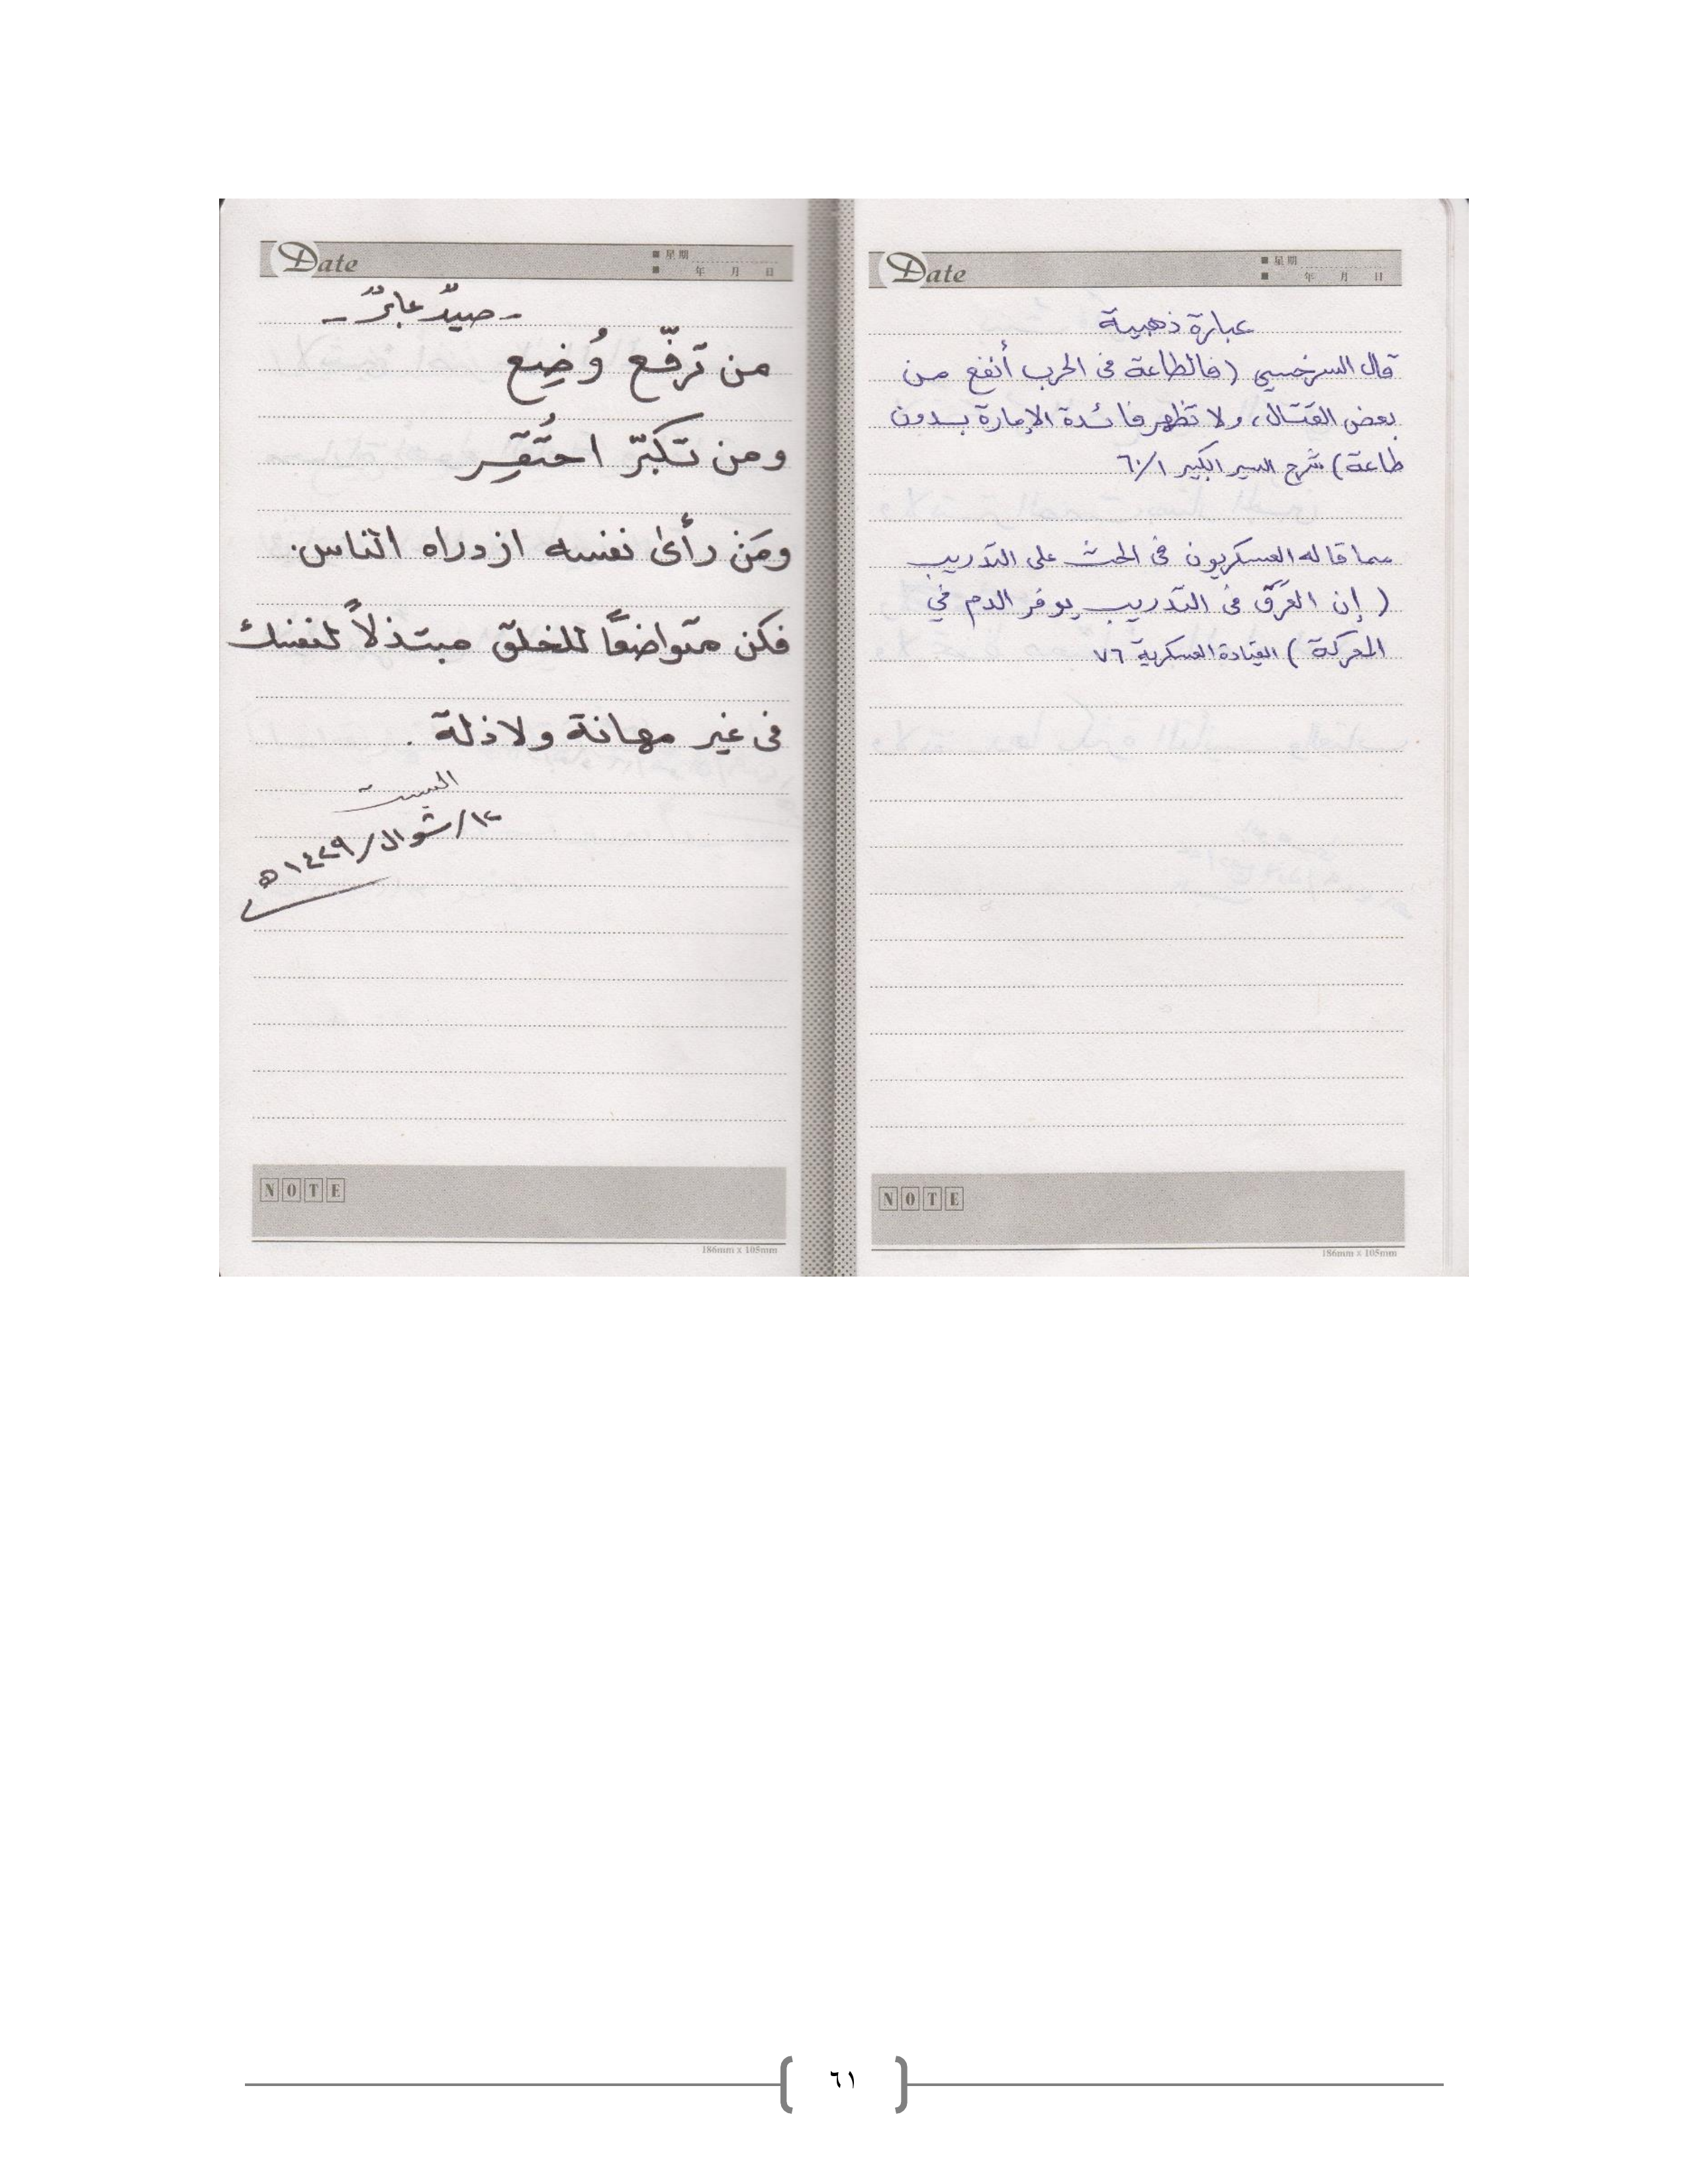 Date
■ 星期
■ 年 月 日
عبارة ذهبية
قال السرخسي (فالطاعة في الحرب أنفع من
بعض القتال، ولا تظهر فائدة الإمارة بدون
طاعة) شرح السير الكبير ٦٠/١
مما قاله العسكريون في الحث على التدريب
(إن العَرَق في التدريب يوفر الدم في
المعركة) القيادة العسكرية ٧٦
NOTE
186mm x 105mm
Date
■ 星期
■ 年 月 日
- صيدٌ عابرٌ -
من ترفّع وُضِع
ومن تكبّر احتُقِر
ومَن رأى نفسه ازدراه الناس.
فكن متواضعًا للخلق مبتذلاً لنفسك
في غير مهانة ولا ذلة.
السبت
١٢/شوال/١٤٢٩ه
NOTE
186mm x 105mm
٦١